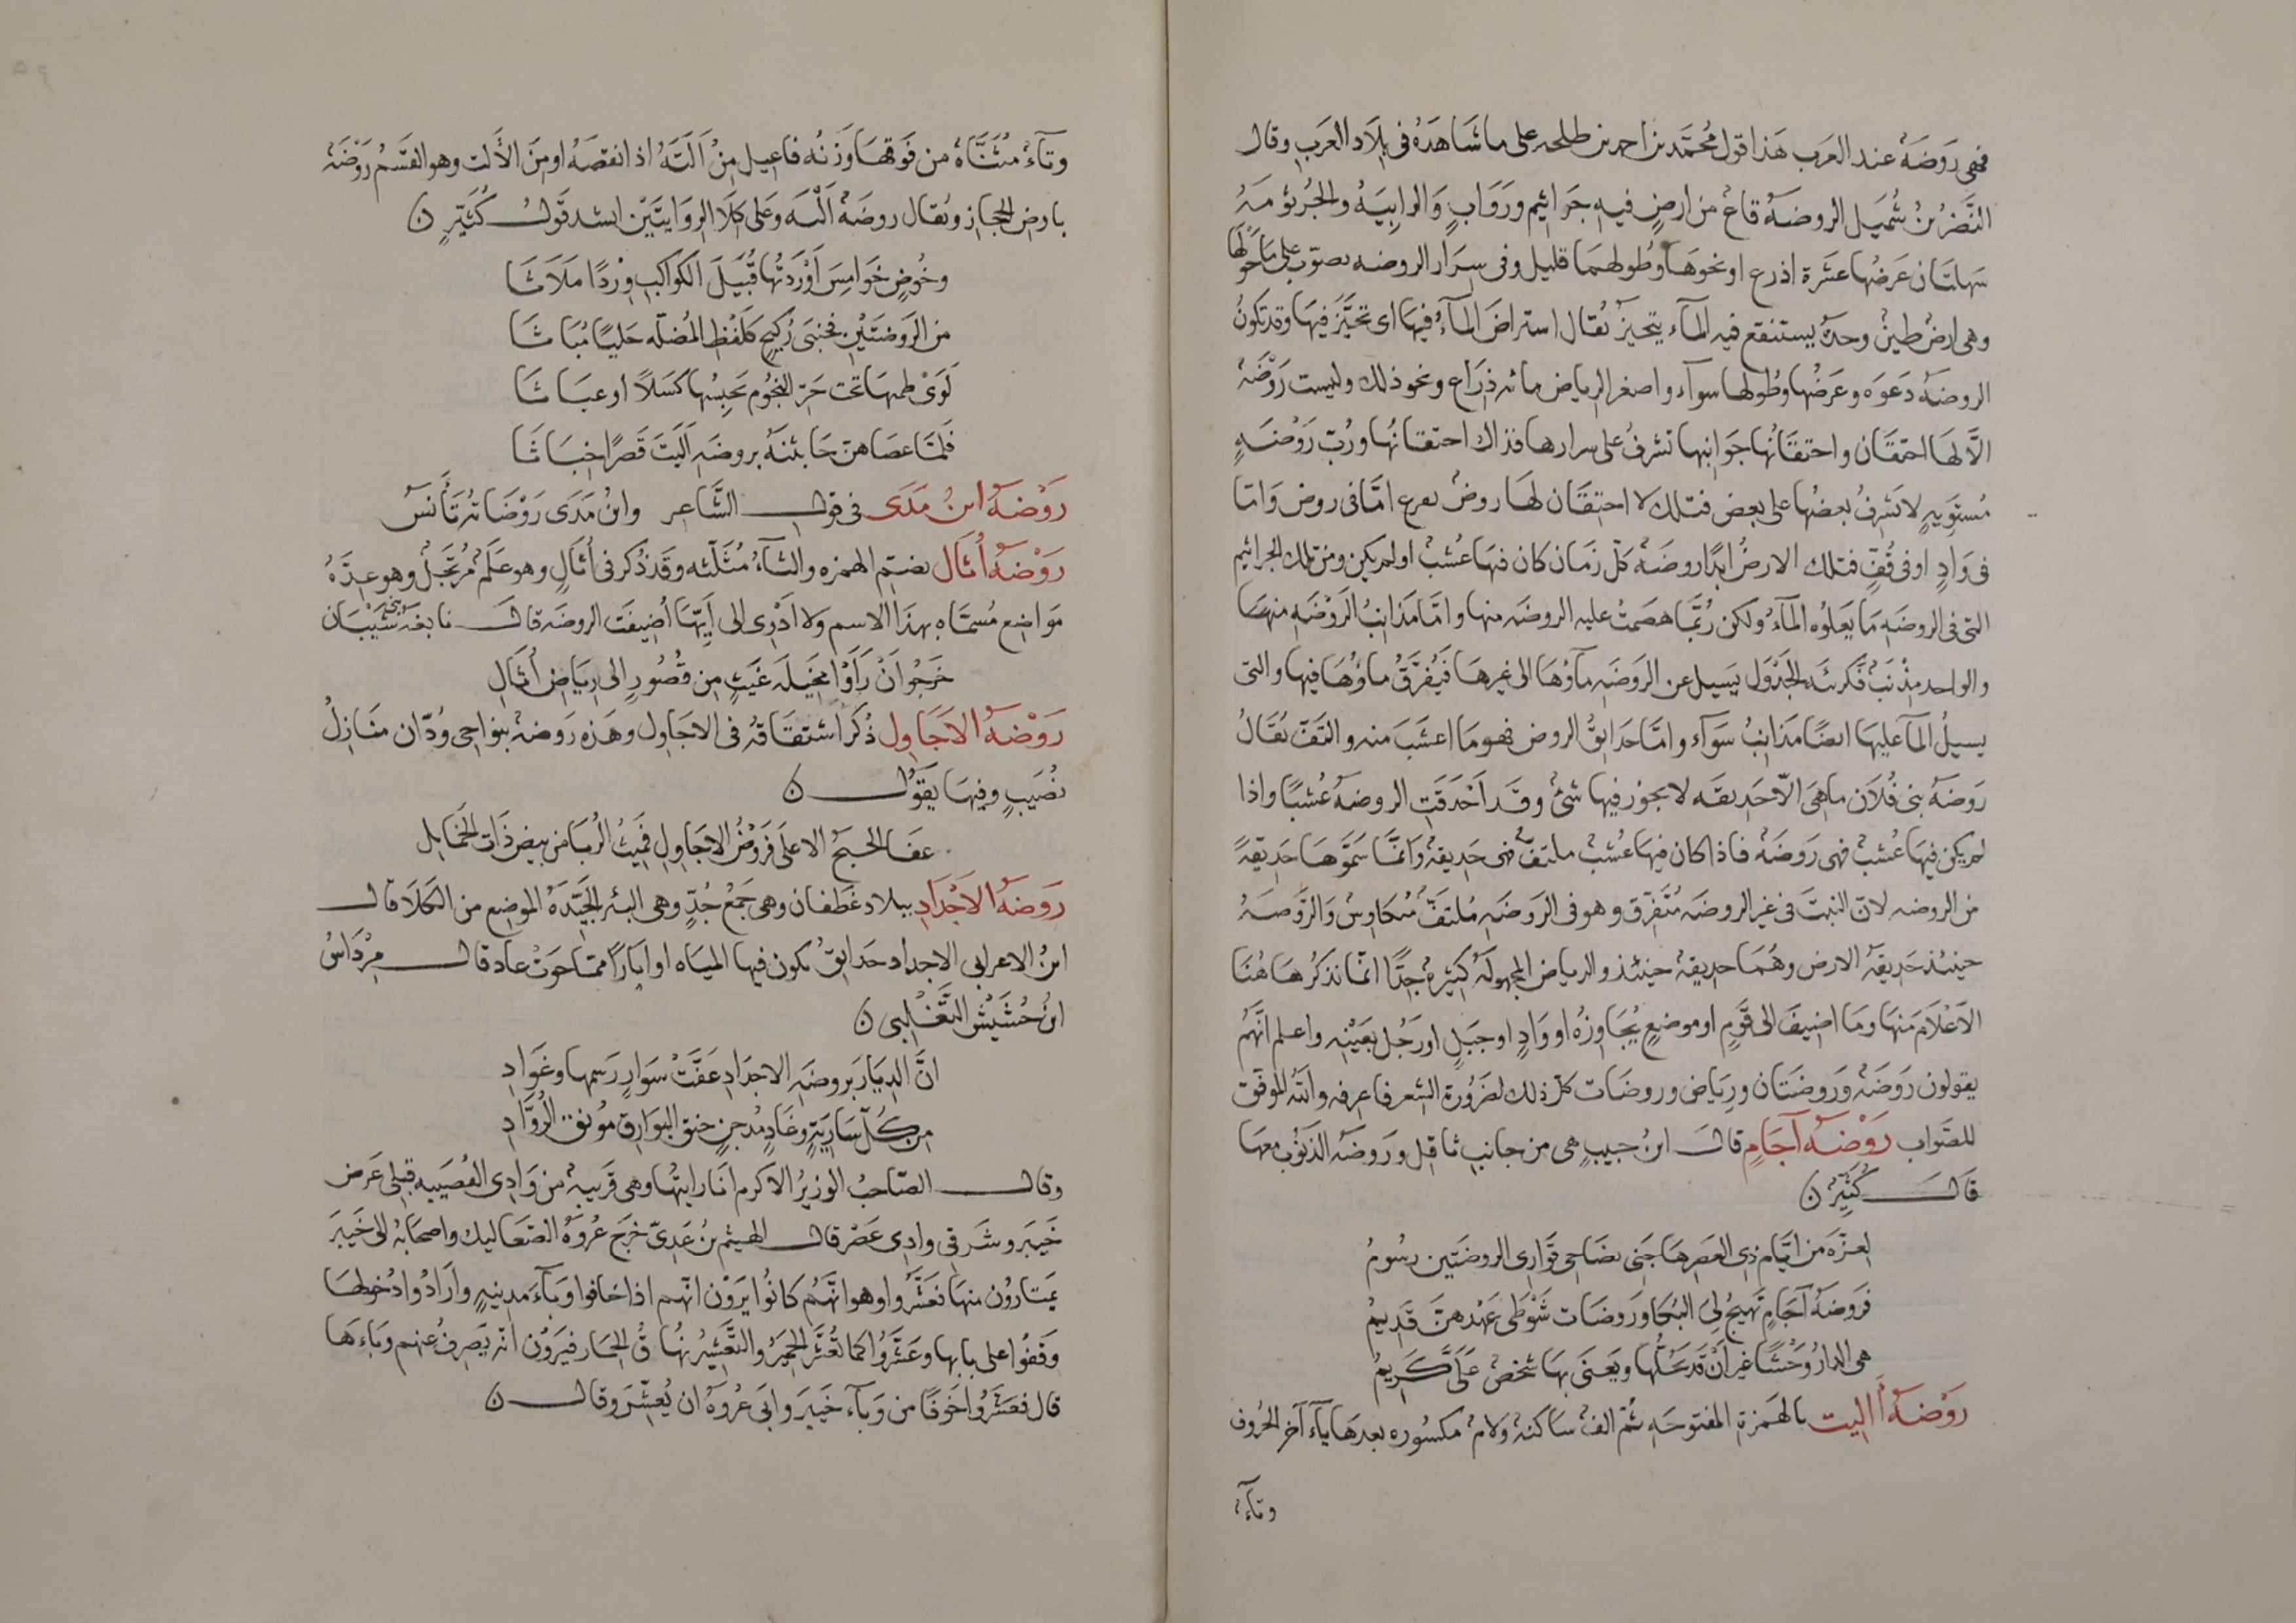 فهى رَوضَةٌ عند العَرب هَذا قول مُحمَّد بن احمد بن طلحه على ما شَاهَدَهُ فى بِلَاد العَرَب وقال
النَّضرُ بنُ شُمَيل الروضَةُ قاعٌ من ارضٍ فيهِ جَرَاثِيم وَرَوَابٍ وَالرابِيَةُ والجُرثومَةُ
سَهلتَان عَرضُها عشَرة اذرع او نحوهَا وطُولهمَا قليل وفى سِرَار الروضه تصوّب على مَا حَولها
وهى ارضُ طينٍ وحدهُ يستنقع فيه المآء يتحيزُ يُقال استراضَ المآءُ فيها اى تحَيَّزَ فيها وقد تكونُ
الروضةُ دَعوَه وعَرضُها وطُولها سوآء واصغر الرياض مائه ذرَاع ونحو ذلك وليست رَوْضَةٌ
الَّا لهَا احتقَان واحتقَانُها جَوانبها تشرفُ على سرارها فذاك احتقانُها ورُبّ رَوْضَةٍ
مُستَوِيهٍ لا يَشرِفُ بعضُها على بعض فتلك لا احتِقَان لهَا روضٌ يفرع امَّا فى روض وَامّا
فى وَادٍ او فى قُفٍّ فتلك الارضُ ابدًا روضَةٌ كلّ زمَان كان فيهَا عُشبٌ او لم يكن ومن تلك الجراثيم
التى فى الروضَهِ مَا يَعلوُه المآءُ ولكن رُبَّما هصَمتْ عليه الروضَه منها وامَّا مَذانِبُ الرَوْضَهِ منهَا
والواحد مِذْنَبٌ فكَهئَه الجَدْوَل يَسيل عن الروَضَهِ مآوُهَا الى غيرهَا فَيُفرَّقُ ماوُهَا فيها والتى
يسيلُ المآ عليهَا ايضًا مذانِبُ سَوآء وامَّا حَدَائِقُ الروض فهو مَا اعشَبَ منه والتَفّ يُقَالُ
رَوضَهُ بنى فُلَان ما هِىَ الّا حَديقَه لا يجوز فيها شئٌ وقَد اَحْدَقَتِ الروضهُ عُشبًا واذا
لم يكن فيَها عُشبٌ فهى رَوضَةٌ فاذا كان فيهَا عُشبٌ ملتفٌّ فهى حَديقةٌ وَانمَّا سَمَّوهَا حَدِيقَةً
من الروضه لانّ النبتَ فى غير الروضَه مُتَفرّق وهو فى الرَوضَهِ مُلتفٌّ مُتكاوِسٌ وَالرَّوضَهُ
حينئذ حَديقَةُ الارض وهُمَا حديقةٌ حينئذ والرياض المجهولَةُ كثيرهٌ جدًّا انمّا نذكرُ هَا هُنَا
الاَعْلَامَ منهَا ومَا اضيفَ الى قَومٍ او موضعٍ يُجَاوِزُهُ او وَادٍ او جَبَلٍ او رَجُل بعَيْنِه واعلم انَّهُم
يقولون رَوضَةٌ وَروضَتان ورِيَاض وروضَات كلّ ذلك لضَرُورة الشعر فاعرفه وَاللهُ الموفّق
للصَّواب رَوْضَهُ آجَامٍ قالَ ابنُ حبيبٍ هى من جانبِ ثاقِل ورَوضَهُ الدَنُوب معهَا
قَالَ كُثَيّر ن
لِعزّهَ من ايّام ذى العَصر هَاجَنى بضَاحِى قَرَارى الروضَتين رسُومُ
فرَوضَهُ آجَامٍ تَهيجُ لِى البُكَا وَروضَات شَوْطَى عَهْدهُنَّ قَديمُ
هى الدارُ وَحْشًا غير اَنْ قَد يَحُلُّها ويَغنَى بهَا شخصٌ عَلَىَّ كَرِيمُ
رَوْضَهُ أَاليت بالهَمزةِ المفتوحَهِ ثُم الفٌ سَاكنهٌ ولامٌ مكسُوره بعدهَا يآء آخر الحُروف
وتآءٌ
وتآءٌ مُثنَّاهٌ من فَوقهَا وَزنُه فاعيل مِنْ اَلَتَهُ اذا نقصَهُ او مِنَ الأَلتِ وهو القسَمُ رَوْضَةٌ
بارضِ الحجاز ويُقال روضَهُ اَلْيَه وَعلى كِلَا الروَايتَيْن انشد قَولَ كُثَيّرٍ ن
وخُوضٍ خَوامِسَ اَوْرَدتُها قُبَيْلَ الكَواكبِ وِرْدًا مَلَاثَا
من الرَوضتَيْن فجَنبَى رُكَيحٍ كَلَفْظِ المُضلّه حَليًا مُبَاثَا
لَوَىْ ظِمَهَا تحت حَرّ النجُومِ يَحِبسُها كَسَلاً او عبَاثَا
فَلمَّا عصَاهنَ خَابثنَهُ بروضَهِ آليتَ قَصرًا خِبَاثَا
رَوْضَهُ ابنُ مَدَى فى قولِ الشَّاعِر وابنُ مَدَى رَوْضَاتهُ تَأْنَسُ
رَوْضَهُ أُثال بضَمِ الهمزه والثآءُ مُثلّثه وقَد ذُكر فى اُثَالٍ وهو عَلَمٌ مُرتَجَلٌ وهو عِدَّهُ
مَوَاضِع مُسمَّاهٍ بهذَا الاسم ولا ادْرى الى اَيِّها اُضِيفَت الروضَه قالَ نابغَهُ بنى شَيْبَان
خَرَجُوا اَنْ رَاَوْا مَخِيلَه غَيثٍ من قُصُورٍ الى رِيَاضِ اُثَالِ
رَوْضَهُ الاَجَاوِل ذُكرَ اشتقَاقُه فى الاجَاول وهَذه رَوضهٌ بنواحِى وُدّان مَنَازلُ
نصَيبٍ وفيهَا يقوُل ن
عفَا الحبجُ الاعلَى فَروْضُ الاجَاوِلِ فمِيثُ الرُبَا من بيضِ ذَات الخمَايِلِ
رَوضَهُ الاَجْدَادِ ببلاد غَطفان وهى جَمْعُ جُدٍّ وهى البئر الجيّدَهُ الموضِع من الكَلَا قالَ
ابنُ الاعرابى الاجداد حَدائقُ تكون فيها الميَاه او ابَارًا ممّا حَوتْ عاد قالَ مِرْدَاسُ
ابنُ حُشَيْش التَّغْلبى ن
انَّ الدِيَار بَروضَهِ الاجدَادِ عَفّتْ سَوارٍ رَسمهَا وغَوَادِ
مِن كُلّ سَارِيَةٍ وغَادٍ مُدجِنٍ حنق البَوارِق مُونق الرُوَّادِ
وقالَ الصّاحبُ الوزيرُ الاكرم انَا رايتُها وهى قَريبهٌ من وَادِى القُصَيبه قبلى عَرض
خَيبَر وشَرقى وادِى عَصْر قالَ الهيثم بنُ عَدِىّ خرَجَ عُروهُ الصَعاليك واصحَابهُ الى خَيبَر
يَمتارُون منهَا فعَشّرُوا وهو انَّهُم كانُوا يَرَوْن انّهم اذا خافوا وَبآءَ مدينهٍ وارَادُوا دُخولهَا
وقفُوا على بابها وعَشّرُوا كما تُعَشِّر الحَميرُ والتَّعْشِيرُ نهُاقُ الحمَار فيَرَوْن انّه يَصرفُ عنهم وبَاءهَا
قال فعشّرُوا خَوفًا من وَبَآء خَيبَر وابَى عُروَهُ ان يُعَشّرَ وقالَ ن